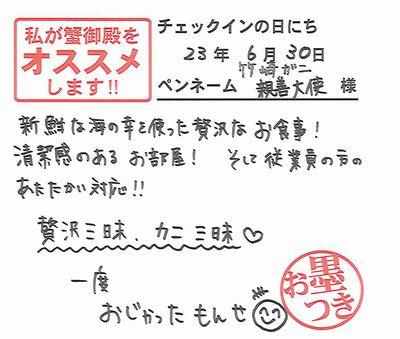 私が蟹御殿を
オススメ
します!!
チェックインの日にち
23年 6月 30日
竹崎がニ
ペンネーム 親善大使 様
新鮮な海の幸を使った贅沢なお食事!
清潔感のあるお部屋! そして従業員の方の
あたたかい対応!!
贅沢三昧、カニ三昧♡
一度
おじかったもんせ
お墨つき